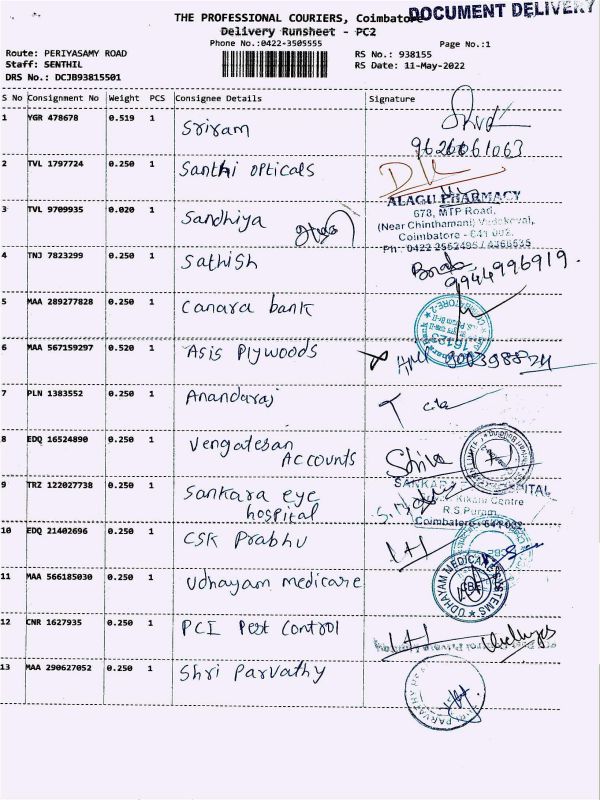 DOCUMENT DELIVERY
THE PROFESSIONAL COURIERS, Coimbatore
Delivery Runsheet - PC2
Phone No.:0422-3505555
Page No.:1
Route: PERIYASAMY ROAD
RS No.: 938155
Staff: SENTHIL
RS Date: 11-May-2022
DRS No.: DCJB93815501
S No Consignment No Weight PCS Consignee Details Signature
1 YGR 478678 0.519 1 Sriram
9626061063
2 TVL 1797724 0.250 1 Santhi opticals
ALAGU PHARMACY
678, MTP Road,
3 TVL 9709935 0.020 1 Sandhiya
(Near Chinthamani) Vadakovai,
Coimbatore - 641 002.
Ph : 0422 2552495 /
4 TNJ 7823299 0.250 1 Sathish
9944996919.
5 MAA 289277828 0.250 1 Canara bank
6 MAA 567159297 0.520 1 Asis Plywoods
7 PLN 1383552 0.250 1 Anandaraj
8 EDQ 16524890 0.250 1 Vengatesan
Accounts
Shiva
9 TRZ 122027738 0.250 1 Sankara eye
hospital
SANKARA HOSPITAL
Centre
R.S.Puram
Coimbatore - 641 002
10 EDQ 21402696 0.250 1 CSK Prabhu
11 MAA 566185030 0.250 1 Udhayam medicare
UDHAYAM MEDICARE SYSTEMS
12 CNR 1627935 0.250 1 PCI Pest Control
13 MAA 290627052 0.250 1 Shri Parvathy